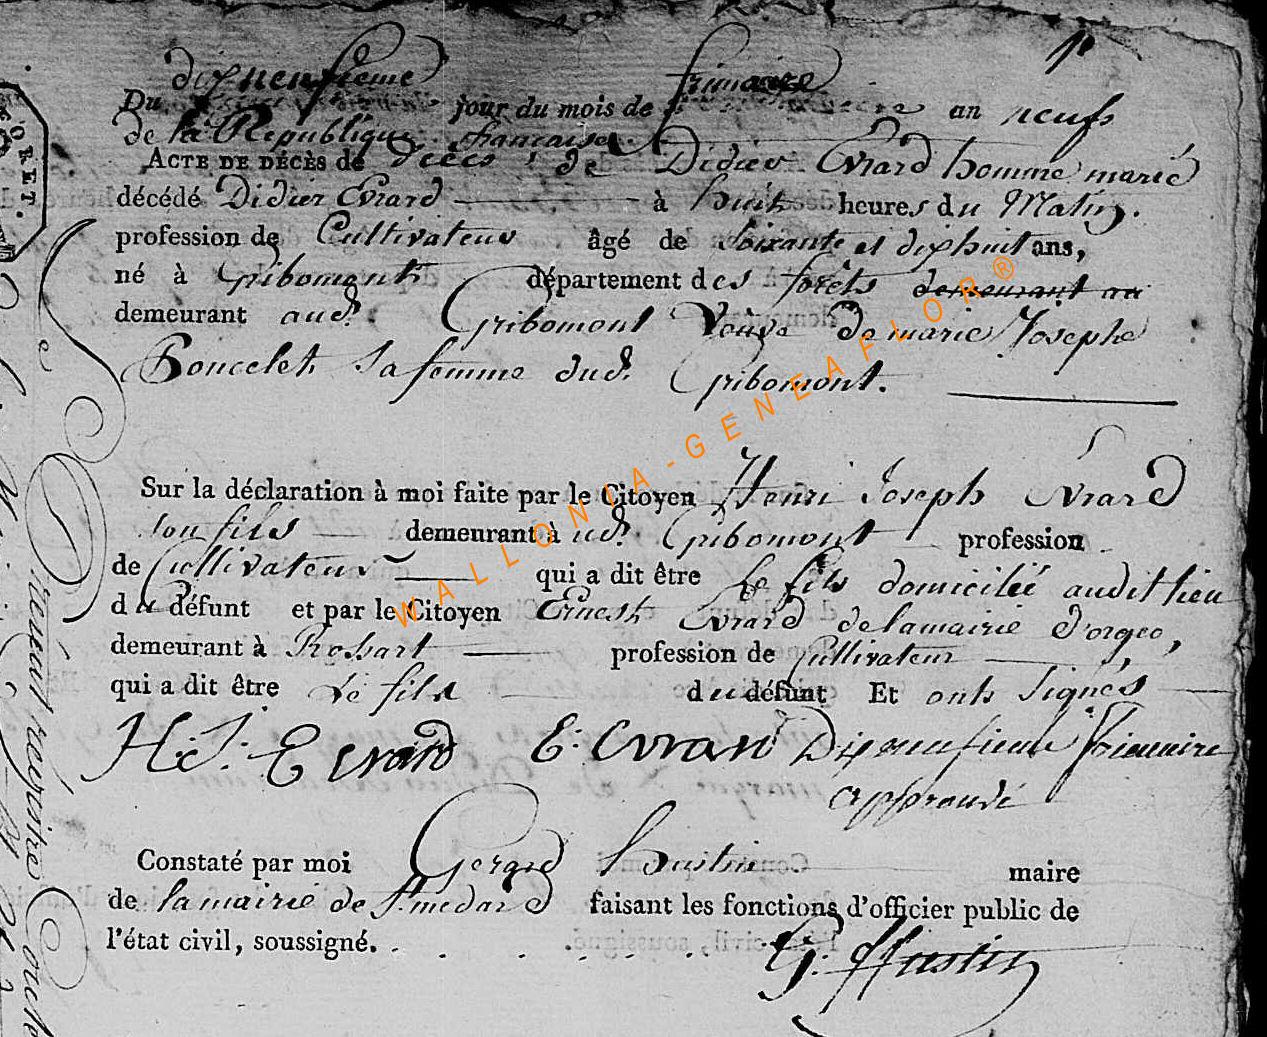 dixneufieme frimaire
Du jour du mois de an neufs
de la République française
ACTE DE DÉCÈS de décès de Didier Evrard homme marié
décédé Didier Evrard à huit heures du Matin.
profession de Cultivateur âgé de Soixante et dixhuit ans,
né à Gribomont département des forêts demeurant au
demeurant aud. Gribomont Veuve de marie Josephe
Poncelet sa femme dud. Gribomont.
Sur la déclaration à moi faite par le Citoyen Henri Joseph Evrard
son fils demeurant à ud. Gribomont profession
de Cultivateur qui a dit être Le fils domicilié audit lieu
du défunt et par le Citoyen Ernest Evrard de la mairie d'orgeo,
demeurant à Rossart profession de Cultivateur,
qui a dit être Le fils du défunt Et onts Signés
H: J: Evrard E: Evrard Dixneufieme frimaire
approuvé
Constaté par moi Gerard hustin maire
de la mairie de St. medard faisant les fonctions d'officier public de
l'état civil, soussigné.
G: Hustin
WALLONIA-GENEAFLOR®
ORET.